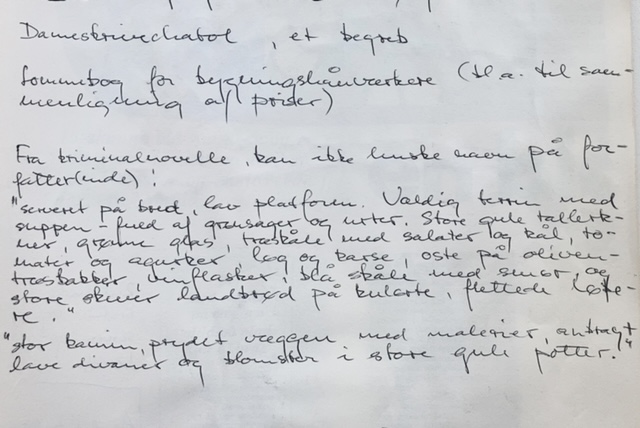 Dameskrivechatol, et begreb
Lommebog for bygningshåndværkere (bl.a. til sam-
menligning af priser)
Fra kriminalnovelle, kan ikke huske navn på for-
fatter(inde):
"serveret på bred, lav platform. Vældig terrin med
suppen - fuld af grønsager og urter. Store gule tallerk-
ner, grønne glas, træskåle med salater og kål, to-
mater og agurker, log og , oste på oliven-
træsbakker, vinflasker, blå skåle med smør, og
store skiver landbrød på kulørte, flettede
re."
"stor kamin, prydet væggen med malerier, antragt
lave divaner og blomster i store gule potter."